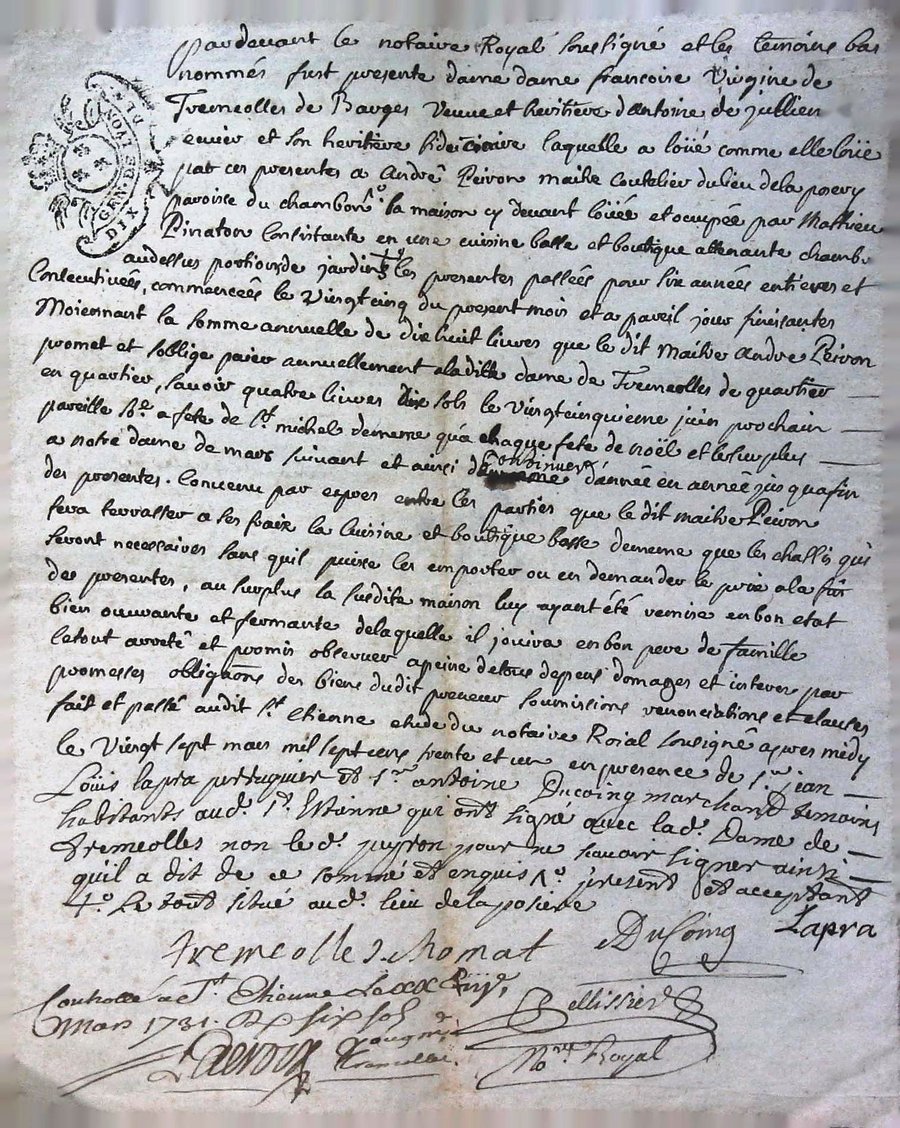 pardevant le notaire Royal soussigné et les temoins bas
nommés fust presente dame dame francoise Virgine de
Tremeolles de Barges Veuve et heritiere d'antoine de jullien
GEN. DE LYON
DIX
et son heritiere fideiciaire laquelle a loüé comme elle loüe
par ces presentes a André Peiron maitre Coutelier du lieu de la poery
paroisse du chambon la maison cy devant loüée et ocupée par Mathieu
Pinaton Consistante en une cuisine basse et boutique attenante chambre
audessus portion de jardin les presentes passées pour six années entieres et
Consecutivées, commenceés le Vingt cinq du present mois et a pareil jour finissantes
Moiennant la somme annuelle de dix huit livres que le dit Maitre Andre Peiron
promet et soblige paier annuellement a laditte dame de Tremeolles de quartier
en quartier, savoir quatre livres dix sols le Vingt cinquieme juin prochain
pareille so.e a fete de st michel dememe qu'a chaque fete de noël et le surplus
a notre dame de mars suivant et ainsi continuer d'année en année jusqu'a fin
des presentes. Convenu par expres entre les parties que le dit maitre Peiron
fera terrasser a ses fraix la cuisine et boutique basse dememe que les challis qui
seront necessaires sans quil puisse les emporter ou en demander le prix a la fin
des presentes, au surplus la susdite maison luy ayant été remise en bon etat
bien ouvrante et fermante de laquelle il jouira en bon pere de famille
le tout arreté et promis observer a peine de tous depens domages et interes par
promesses obligãons des biens dudit preneur soumissions renonciations et clauses
fait et passé audit st Etienne etude du notaire Roial sousigné apres midy
le Vingt sept mars mil sept cens trente et un en presence de sr jean
Loüis lapra perruquier et sr antoine Ducoing marchand temoins
habitants aud. st. Etienne qui ont signé avec lad. Dame de
Tremeolles non led. peyron pour ne scavoir signer ainsi
quil a dit de ce sommé et enquis 1.o present et acceptant
4.o Le tout situé aud. lieu de la poierie
Tremeolles DuCoing Lapra
Controllé a st Etienne Le
Mars 1731. R six sols
Pellissier
No.re Royal